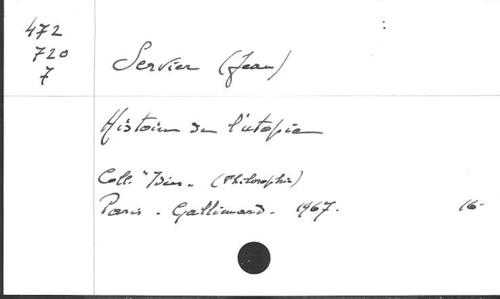 472
720
7
Servier (Jean)
Histoire de l'utopie
Coll. "Idées. (Philosophie)
Paris. Gallimard. 1967. 16-